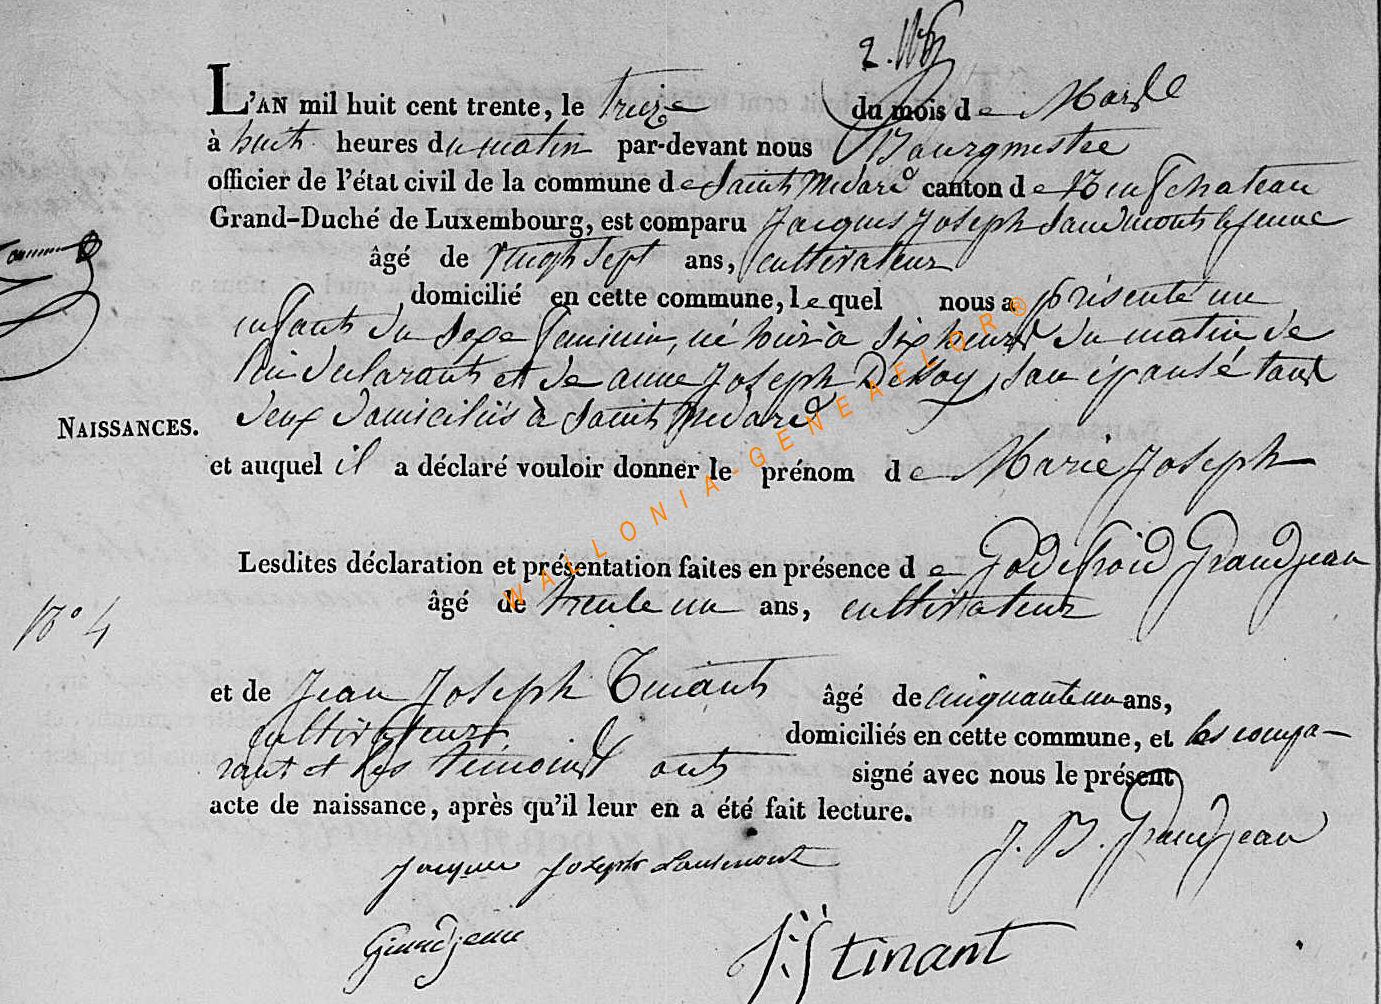 L'AN mil huit cent trente, le treize du mois de Mars
à huit heures du matin par-devant nous Bourgmestre
officier de l'état civil de la commune de Saint Medard canton de Neufchateau
Grand-Duché de Luxembourg, est comparu Jacques Joseph Laudmont le jeune
âgé de vingt sept ans, cultivateur
domicilié en cette commune, lequel nous a présenté un
enfant du sexe feminin, né hier à six heures du matin de
lui declarant et de anne Joseph Dessoy, son épousé tous
deux domiciliés à Saint Medard
NAISSANCES.
et auquel il a déclaré vouloir donner le prénom de Marie Joseph
Lesdites déclaration et présentation faites en présence de Godefroid Grandjean
âgé de trente un ans, cultivateur
N° 4
et de Jean Joseph Tinant âgé de cinquante un ans,
cultivateurs domiciliés en cette commune, et les compa-
rant et les temoins ont signé avec nous le présent
acte de naissance, après qu'il leur en a été fait lecture.
Jacques Joseph Laudmont J. B. Grandjean
Grandjean J: J tinant
WALLONIA-GENEAFLOR®